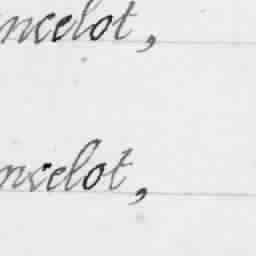 ncelot,
ncelot,